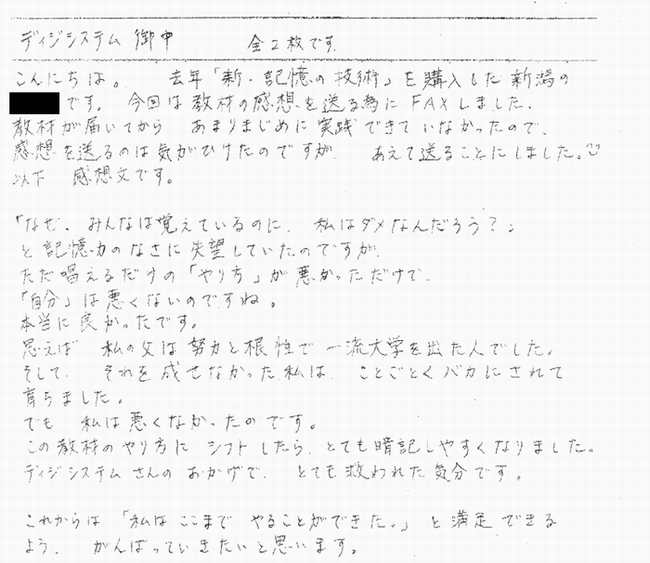 ディジシステム 御中 全2枚です.
こんにちは。 去年「新・記憶の技術」を購入した新潟の
です。 今回は教材の感想を送る為にFAXしました.
教材が届いてから あまりまじめに実践できていなかったので、
感想を送るのは気がひけたのですが、 あえて送ることにしました。
以下 感想文です。
「なぜ、みんなは覚えているのに、私はダメなんだろう?」
と記憶力のなさに失望していたのですが、
ただ唱えるだけの「やり方」が悪かっただけで、
「自分」は悪くないのですね。
本当に良かったです。
思えば 私の父は努力と根性で一流大学を出た人でした。
そして、 それを成せなかった私は、ことごとくバカにされて
育ちました。
でも 私は悪くなかったのです。
この教材のやり方に シフトしたら、とても暗記しやすくなりました。
ディジシステムさんのおかげで、 とても救われた気分です。
これからは 「私はここまで やることができた。」と満足できる
よう、 がんばっていきたいと思います。